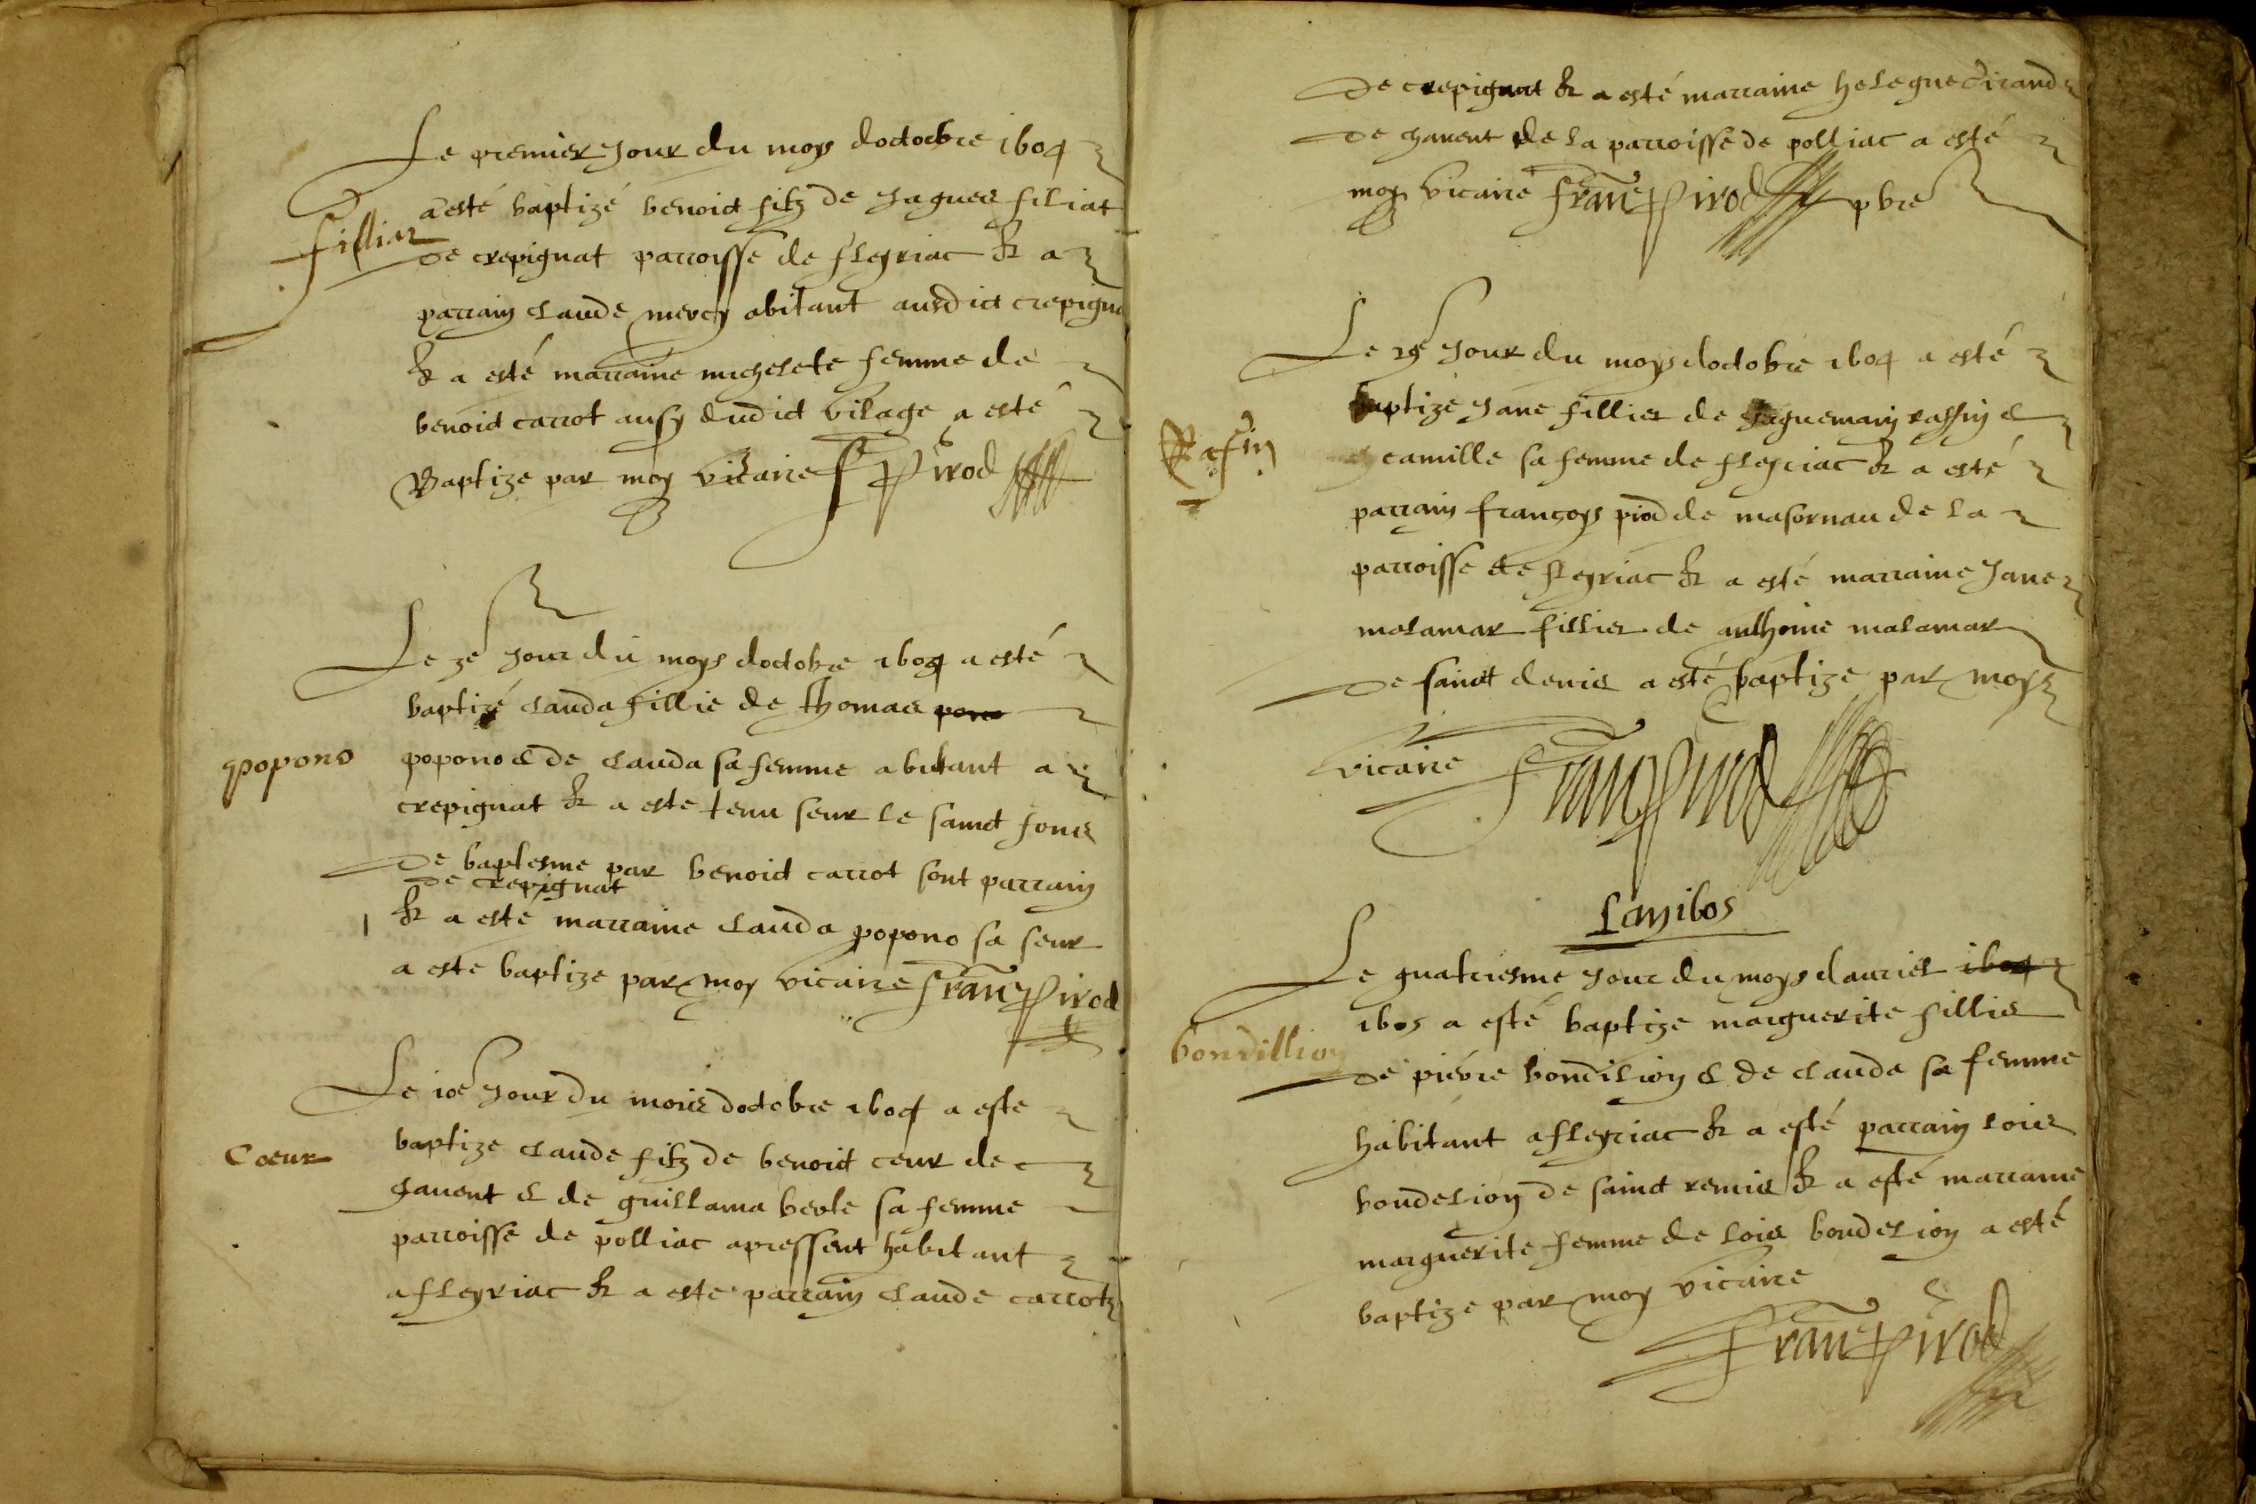 Le premier Jour du moys doctocbre 1604
a esté baptizé benoict filz de Jaques filiat
fillier
de crepignat parroisse de fleyriac & a
parrain claude mercy abitant ausdict crepigna
& a esté marraine michelete femme de
benoict carrot ausy dudict vilage a esté
Baptize par moy vicaire f Pirod
Le 3e Jour du moys doctobre 1604 a esté
baptizé clauda fillie de thomas
popono
popono & de clauda sa femme abitant a
crepignat & a este tenu seur le sainct fons
de baptesme par benoict carrot sont parrain
de crepignat
& a esté marraine clauda popono sa seur
a este baptize par moy vicaire fran Pirod
Le 10e Jour du mois doctobre 1604 a este
Coeur
baptize claude filz de benoict ceur de
chavent & de guillama verle sa femme
parroisse de polliac apressent habitant
a fleyriac & a este parrain claude carrotz
de crepignat & a esté marraine helegne dirande
de chavent de la parroisse de polliac a esté
moy vicaire fran Pirod pbre
Le 19e Jour du moys doctobre 1604 a esté
baptize Jane fillies de Jaguemain raffin &
Rafin
camille sa femme de fleyriac & a esté
parrain françoys piod de masornau de la
parroisse de fleyriac & a esté marraine Jane
malamar fillies de anthoine malamar
de sainct denis a esté baptize par moy
vicaire fran Pirod
Lan 1605
Le quatriesme Jour du moys dauriel 1604
1605 a esté baptize marguerite fillies
bondillion
de pierre bondilion & de clauda sa femme
habitant a fleyriac & a esté parrain lois
bondelion de sainct remis & a esté marraine
marguerite femme de lois bondelion a esté
baptize par moy vicaire
fran Pirod